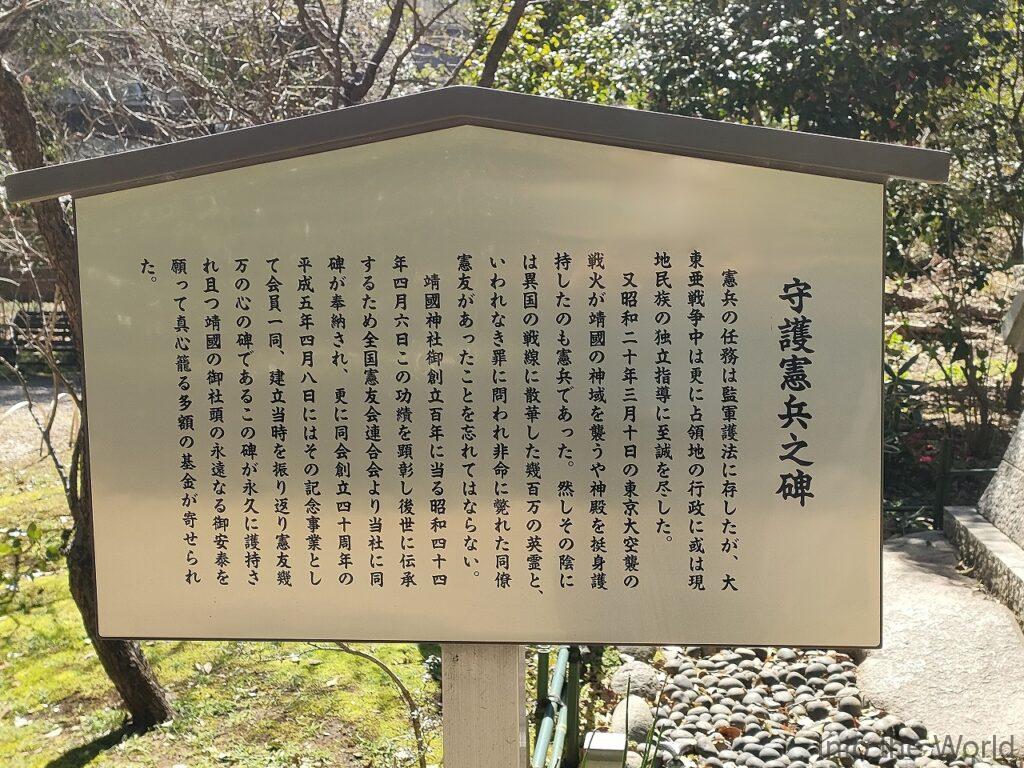 守護憲兵之碑
憲兵の任務は監軍護法に存したが、大
東亜戦争中は更に占領地の行政に或は現
地民族の独立指導に至誠を尽した。
又昭和二十年三月十日の東京大空襲の
戦火が靖國の神域を襲うや神殿を挺身護
持したのも憲兵であった。然しその陰に
は異国の戦線に散華した幾百万の英霊と、
いわれなき罪に問われ非命に斃れた同僚
憲友があったことを忘れてはならない。
靖國神社御創立百年に当る昭和四十四
年四月六日この功績を顕彰し後世に伝承
するため全国憲友会連合会より当社に同
碑が奉納され、更に同会創立四十周年の
平成五年四月八日にはその記念事業とし
て会員一同、建立当時を振り返り憲友幾
万の心の碑であるこの碑が永久に護持さ
れ且つ靖國の御社頭の永遠なる御安泰を
願って真心籠る多額の基金が寄せられ
た。
Into the World